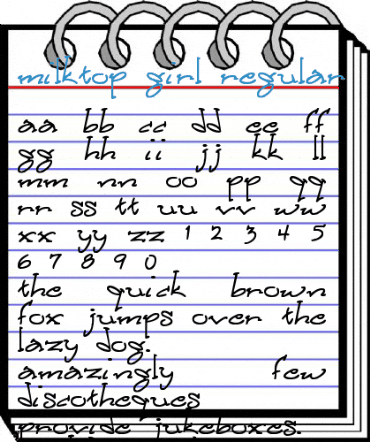 milktop girl regular
aa bb cc dd ee ff
gg hh ii jj kk ll
mm nn oo pp qq
rr ss tt uu vv ww
xx yy zz 1 2 3 4 5
6 7 8 9 0
the quick brown
fox jumps over the
lazy dog.
amazingly few
discotheques
provide jukeboxes.